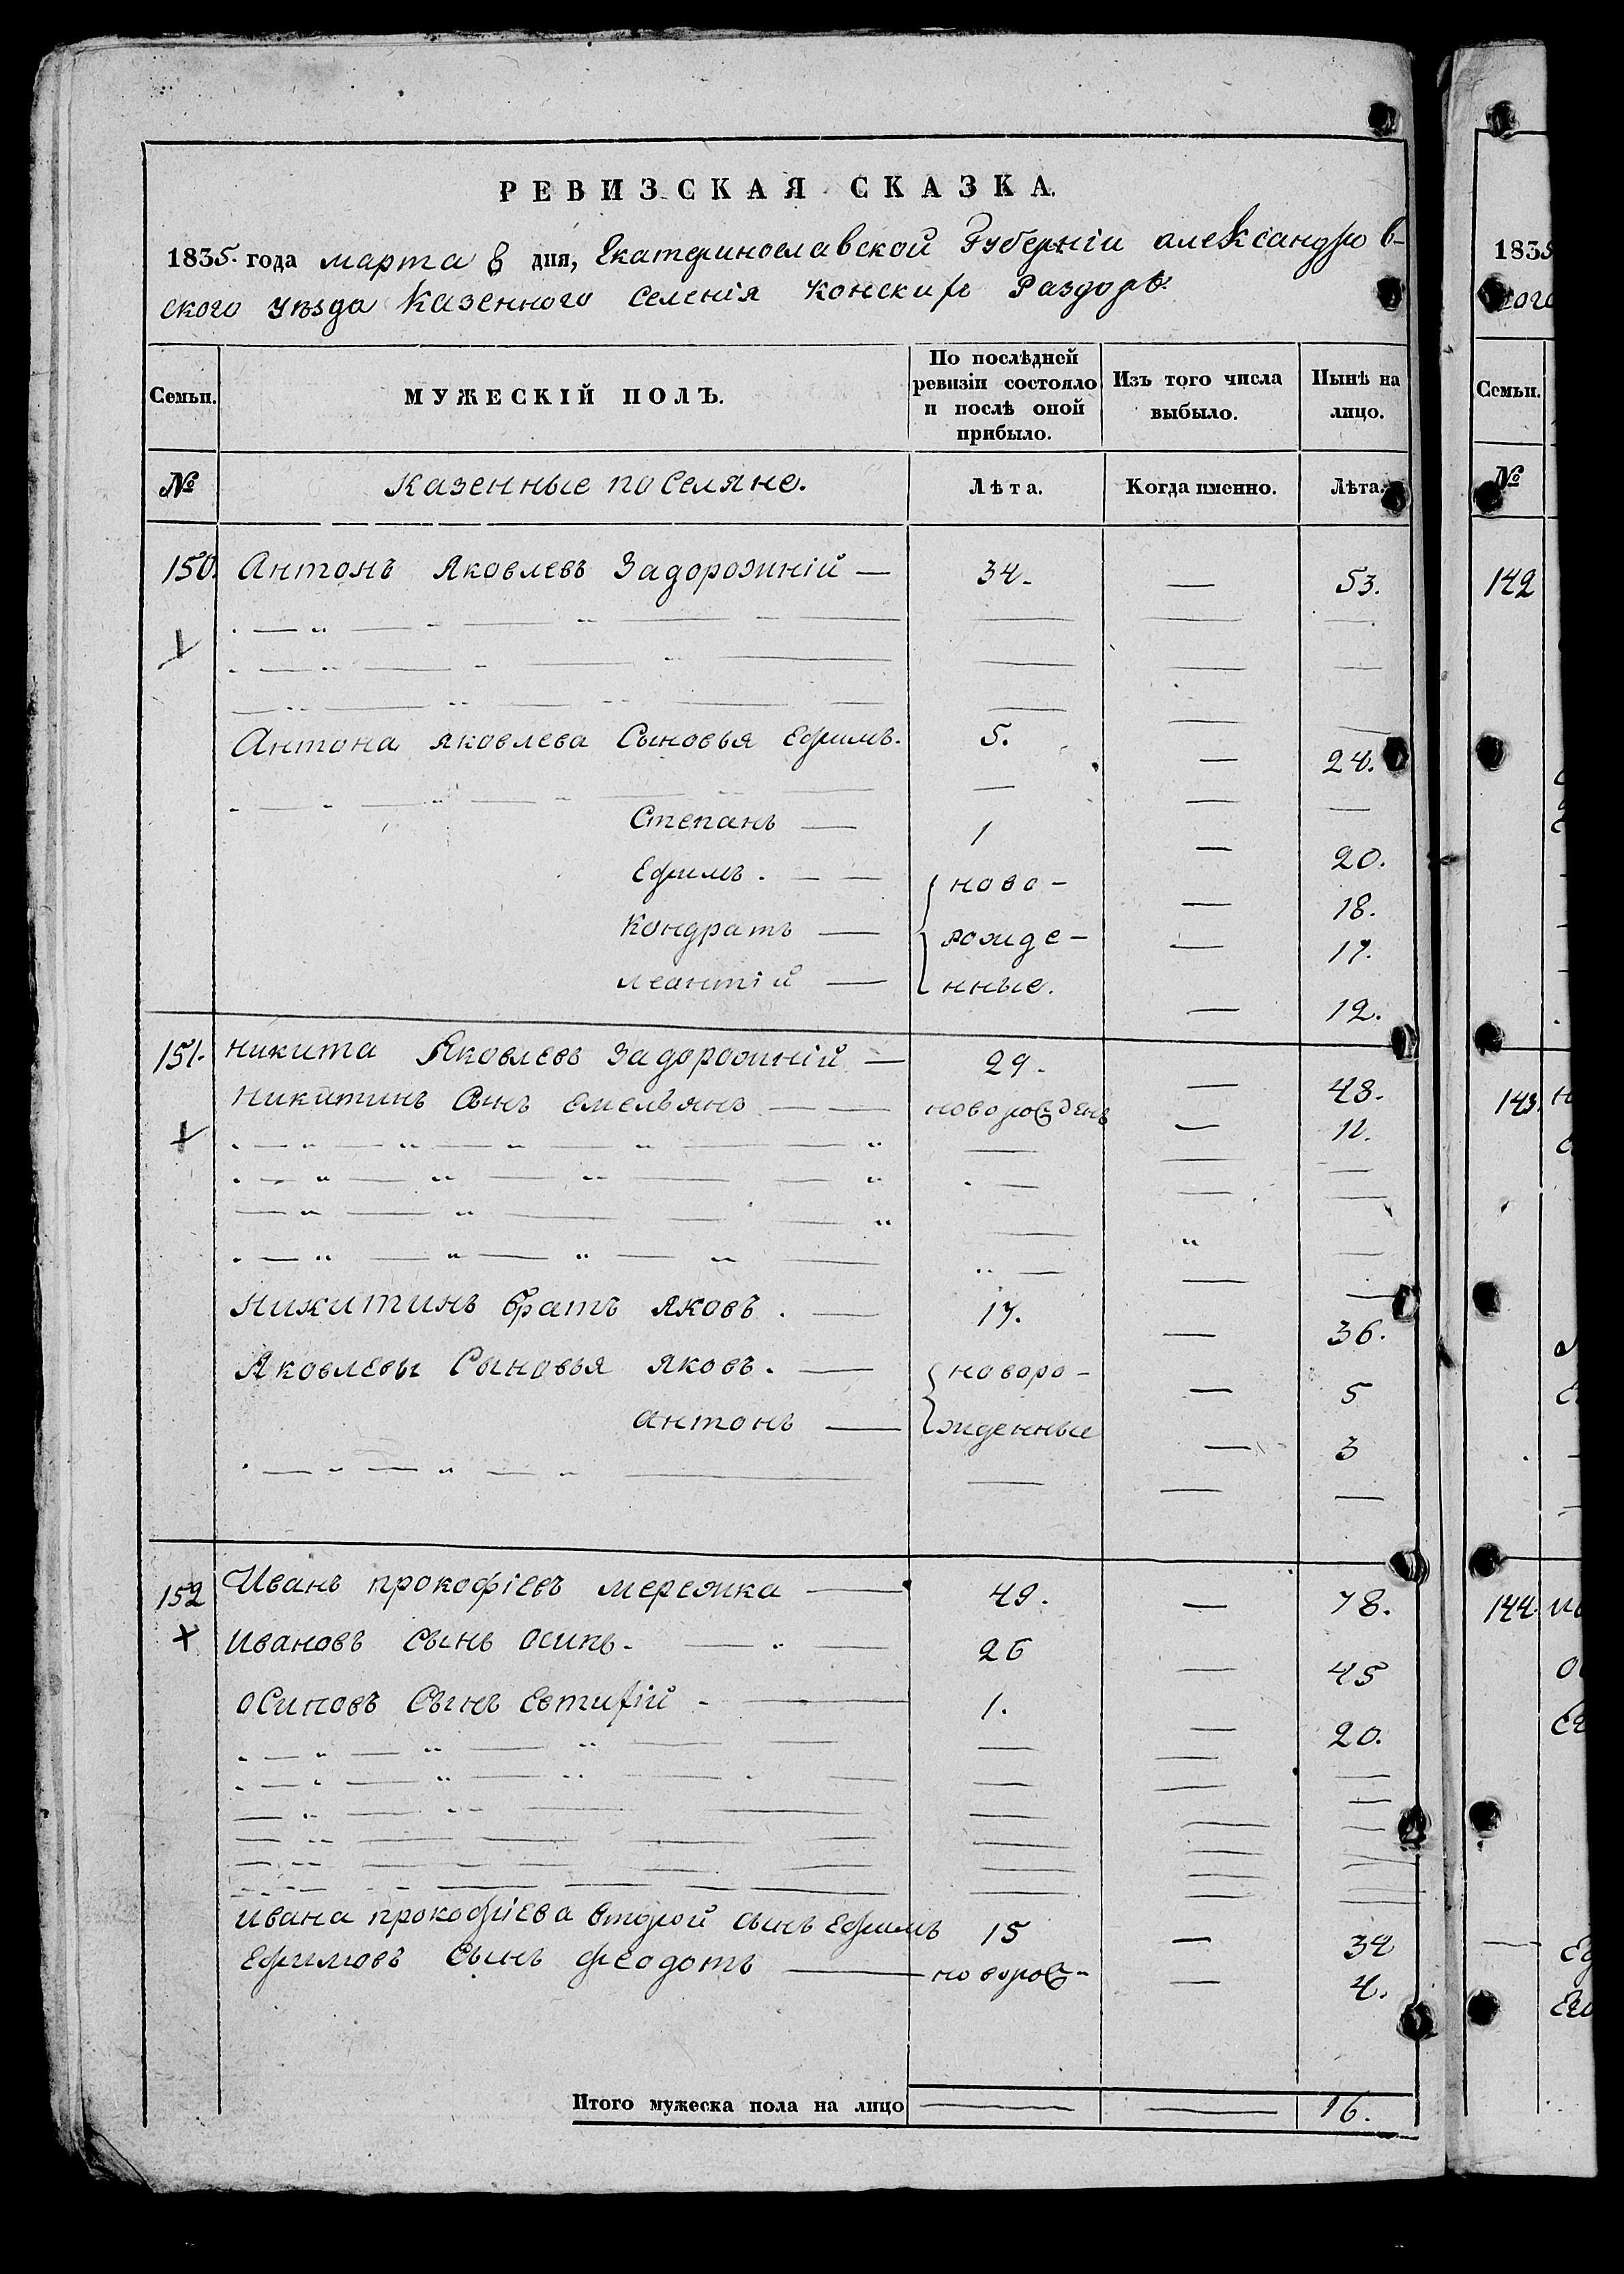 РЕВИЗСКАЯ СКАЗКА.
1835. года марта 8 дня, Екатеринославской Губерніи александров-
ского уѣзда Казенного Селенія Конских Раздоръ
Семьи. МУЖЕСКІЙ ПОЛЪ. По послѣдней ревизіи состояло и послѣ оной прибыло. Изъ того числа выбыло. Нынѣ на лицо.
№ Казенные поСеляне. Лѣта. Когда именно. Лѣта.
150. Антонъ Яковлевъ Задорожній — 34. — 53.
Антона яковлева Сыновья Ефимъ. 5. — 24.
Степанъ — 1 — 20.
Ефимъ. — — ново- — 18.
Кондратъ — рожде- — 17.
леантій — нные. — 12.
151. Никита Яковлевъ Задорожній — 29. — 48.
Никитинъ Сынъ емельянъ — — новорожденъ — 12.
Никитинъ братъ яковъ. — 17. — 36.
Яковлевы Сыновья яковъ. — новоро- — 5
антонъ — жденные — 3
152 Иванъ прокофіевъ мережка — 49. — 78.
Ивановъ сынъ осипъ. — — 26 — 45
осиповъ Сынъ Евтифій — 1. — 20.
Ивана прокофіева второй сынъ Ефимъ 15 — 34
Ефимовъ Сынъ феодотъ — новорож- — 4.
Итого мужеска пола на лицо — — 16.
1835
Семьи.
№
142
143.
144.